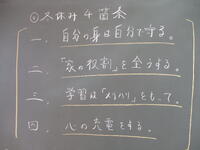 ◎冬休み4箇条
一、自分の身は自分で守る。
二、「家の役割」を全うする。
三、学習は「メリハリ」をもって。
四、心の充電をする。